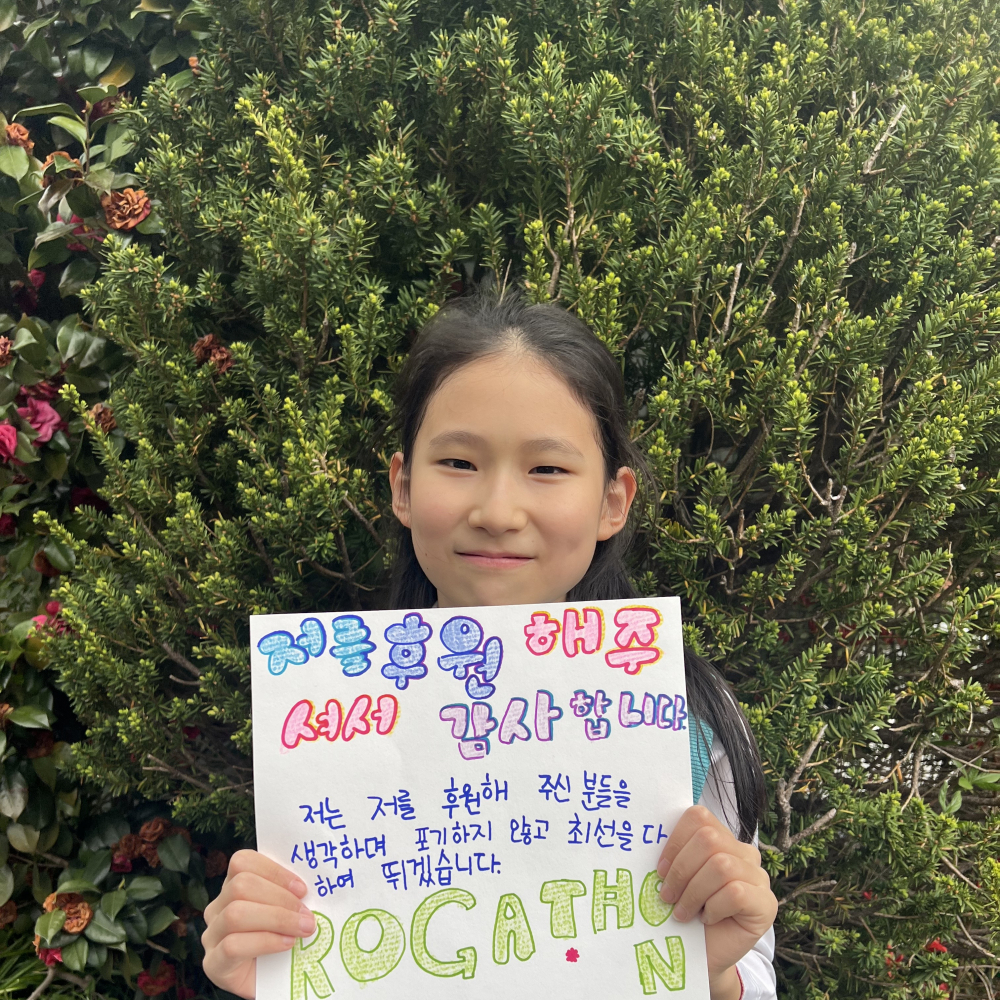 저를 후원 해주
셔서 감사합니다.
저는 저를 후원해 주신 분들을
생각하며 포기하지 않고 최선을 다
하여 뛰겠습니다.
ROGATHO
N